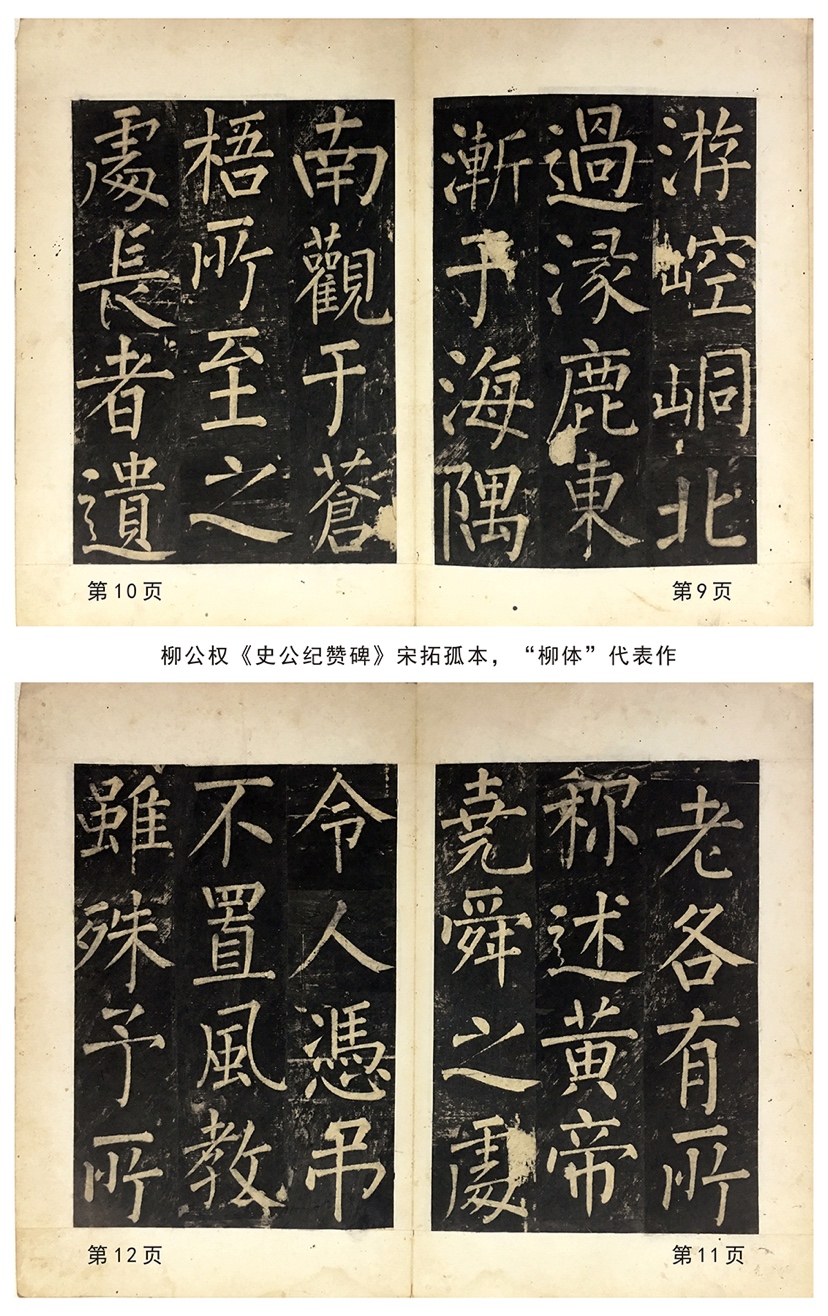 游崆峒北
過涿鹿東
漸于海隅
第9页
南觀于蒼
梧所至之
處長者遺
第10页
柳公权《史公纪赞碑》宋拓孤本，“柳体”代表作
老各有所
称述黃帝
堯舜之處
第11页
令人憑吊
不置風教
雖殊予所
第12页